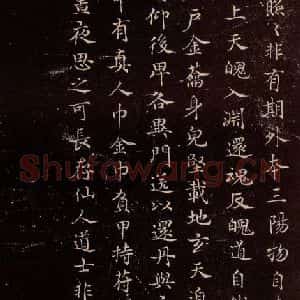 照々非有期外本三陽物自
上天魄入淵還魂反魄道自
戶金籥身完堅載地玄天迫
仰後卑各異門送以還丹與
中有真人巾金巾負甲持符
晝夜思之可長存仙人道士非
Shufawang.CN